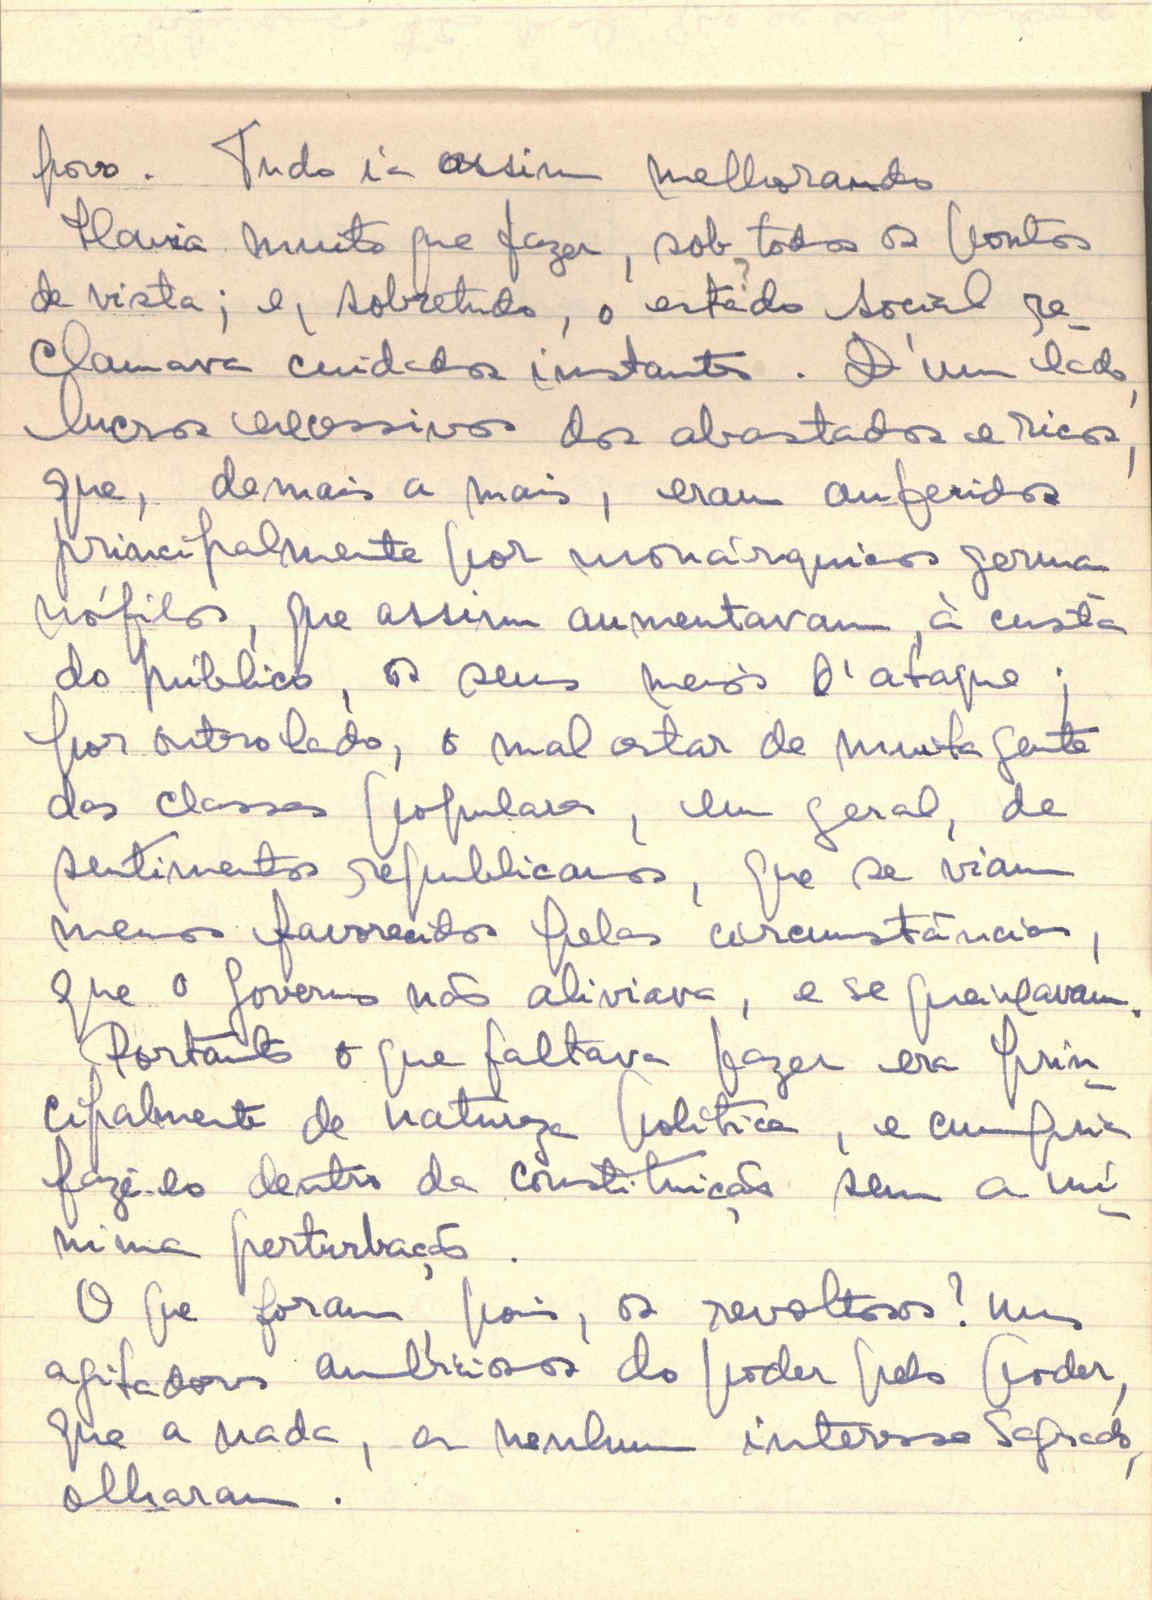 povo. Tudo ía assim melhorando
Havia muito que fazer, sob todos os pontos
de vista; e, sobretudo, o estado social re-
clamava cuidados instantes. D'um lado,
lucros excessivos dos abastados e ricos,
que, demais a mais, eram auferidos
principalmente por monárquicos germa
nófilos, que assim aumentavam, à custa
do público, os seus meios d'ataque;
por outro lado, o mal estar de muita gente
das classes populares, em geral, de
sentimentos republicanos, que se viam
menos favorecidos pelas circumstâncias,
que o governo não aliviava, e se queixavam.
Portanto o que faltava fazer era prin-
cipalmente de natureza política, e cumpria
fazê-lo dentro da constituição sem a mí-
nima perturbação.
O que foram, pois, os revoltosos? Uns
agitadores ambiciosos do poder pelo poder,
que a nada, a nenhum interesse sagrado,
olharam.